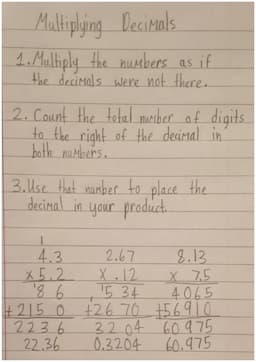 Multiplying Decimals
1. Multiply the numbers as if
the decimals were not there.
2. Count the total number of digits
to the right of the decimal in
both numbers.
3. Use that number to place the
decimal in your product.
1
4.3 2.67 8.13
x 5.2 x .12 x 7.5
18 6 15 34 4065
+215 0 +26 70 +56910
223 6 32 04 60 975
22.36 0.3204 60.975